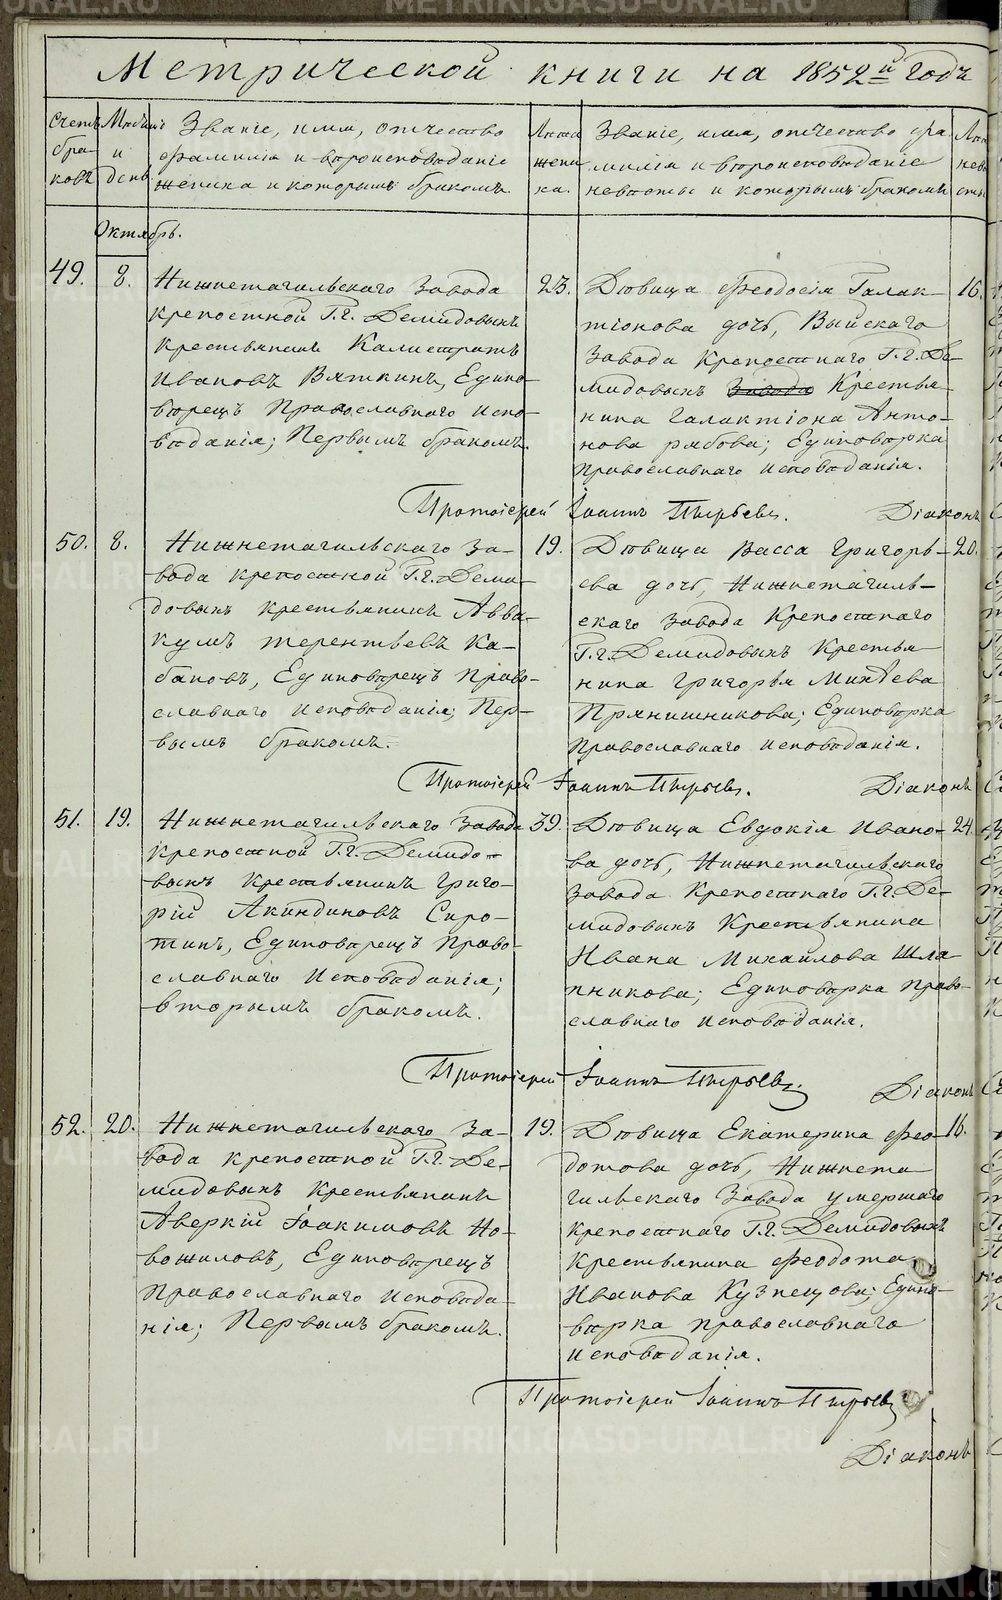 Метрической книги на 1852й годъ
Счетъ браковъ
Мѣсяцъ и день
Званіе, имя, отчество
фамилія и вѣроисповѣданіе
жениха и которымъ бракомъ.
Лѣта жениха.
Званіе, имя, отчество фа-
милія и вѣроисповѣданіе
невѣсты и которымъ бракомъ
Лѣта невѣсты
Октябрь.
49.
8.
Нижнетагильскаго завода
крепостной Г.г. Демидовыхъ
крестьянинъ Калистратъ
Ивановъ Вяткинъ, Едино-
вѣрецъ Православнаго испо-
вѣданія; Первымъ бракомъ.
23.
Дѣвица Феодосія Галак-
тіонова дочь, Выйскаго
завода Крепостнаго Г.г. Де-
мидовыхъ завода Крестья-
нина Галактіона Анто-
нова рябова; Единовѣрка
православнаго исповѣданія.
16.
Протоіерей Іоаннъ Пырьевъ.
Діаконъ
50.
8.
Нижнетагильскаго За-
вода крепостной Г.г. Деми-
довыхъ крестьянинъ Авва-
кумъ терентьевъ Ка-
бановъ, Единовѣрецъ Право-
славнаго исповѣданія; Пер-
вымъ бракомъ.
19.
Дѣвица Васса Григорь-
ева дочь, Нижнетагиль-
скаго завода Крепостнаго
Г.г. Демидовыхъ Крестья
нина Григорья Михѣева
Прянишникова; Единовѣрка
православнаго исповѣданія.
20.
Протоіерей Іоаннъ Пырьевъ.
Діаконъ
51.
19.
Нижнетагильскаго Завода
крепостной Г.г. Демидо-
выхъ крестьянинъ Григо-
рій Акиндиновъ Сиро-
тинъ, Единовѣрецъ Право-
славнаго исповѣданія;
вторымъ бракомъ.
39.
Дѣвица Евдокія Ивано-
ва дочь, Нижнетагильскаго
завода Крепостнаго Г.г. Де-
мидовыхъ Крестьянина
Ивана Михайлова Шля
пникова; Единовѣрка Право-
славнаго исповѣданія.
24.
Протоіерей Іоаннъ Пырьевъ.
Діаконъ
52.
20.
Нижнетагильскаго За-
вода крепостной Г.г. Де-
мидовыхъ крестьянинъ
Аверкій Іоакимовъ Но-
вожиловъ, Единовѣрецъ
Православнаго исповѣда-
нія; Первымъ бракомъ.
19.
Дѣвица Екатерина Фео-
дотова дочь, Нижнета
гильскаго Завода умершаго
крепостнаго Г.г. Демидовыхъ
Крестьянина Феодота
Иванова Кузнецова; Едино-
вѣрка православнаго
исповѣданія.
16.
Протоіерей Іоаннъ Пырьевъ
Діаконъ
METRIKI.GASO-URAL.RU